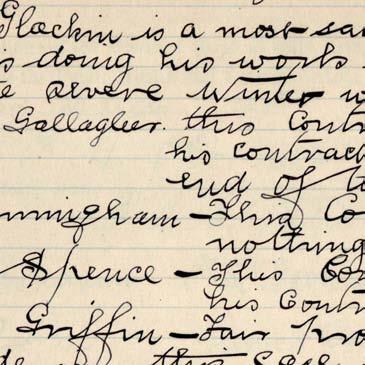 Glackin is a most sa
s doing his work
e severe Winter w
Gallagher. this Contr
his contract
end of t
nningham - This Co
nothing
Spence - This Co
his Contr
Griffin - Fair pro
this